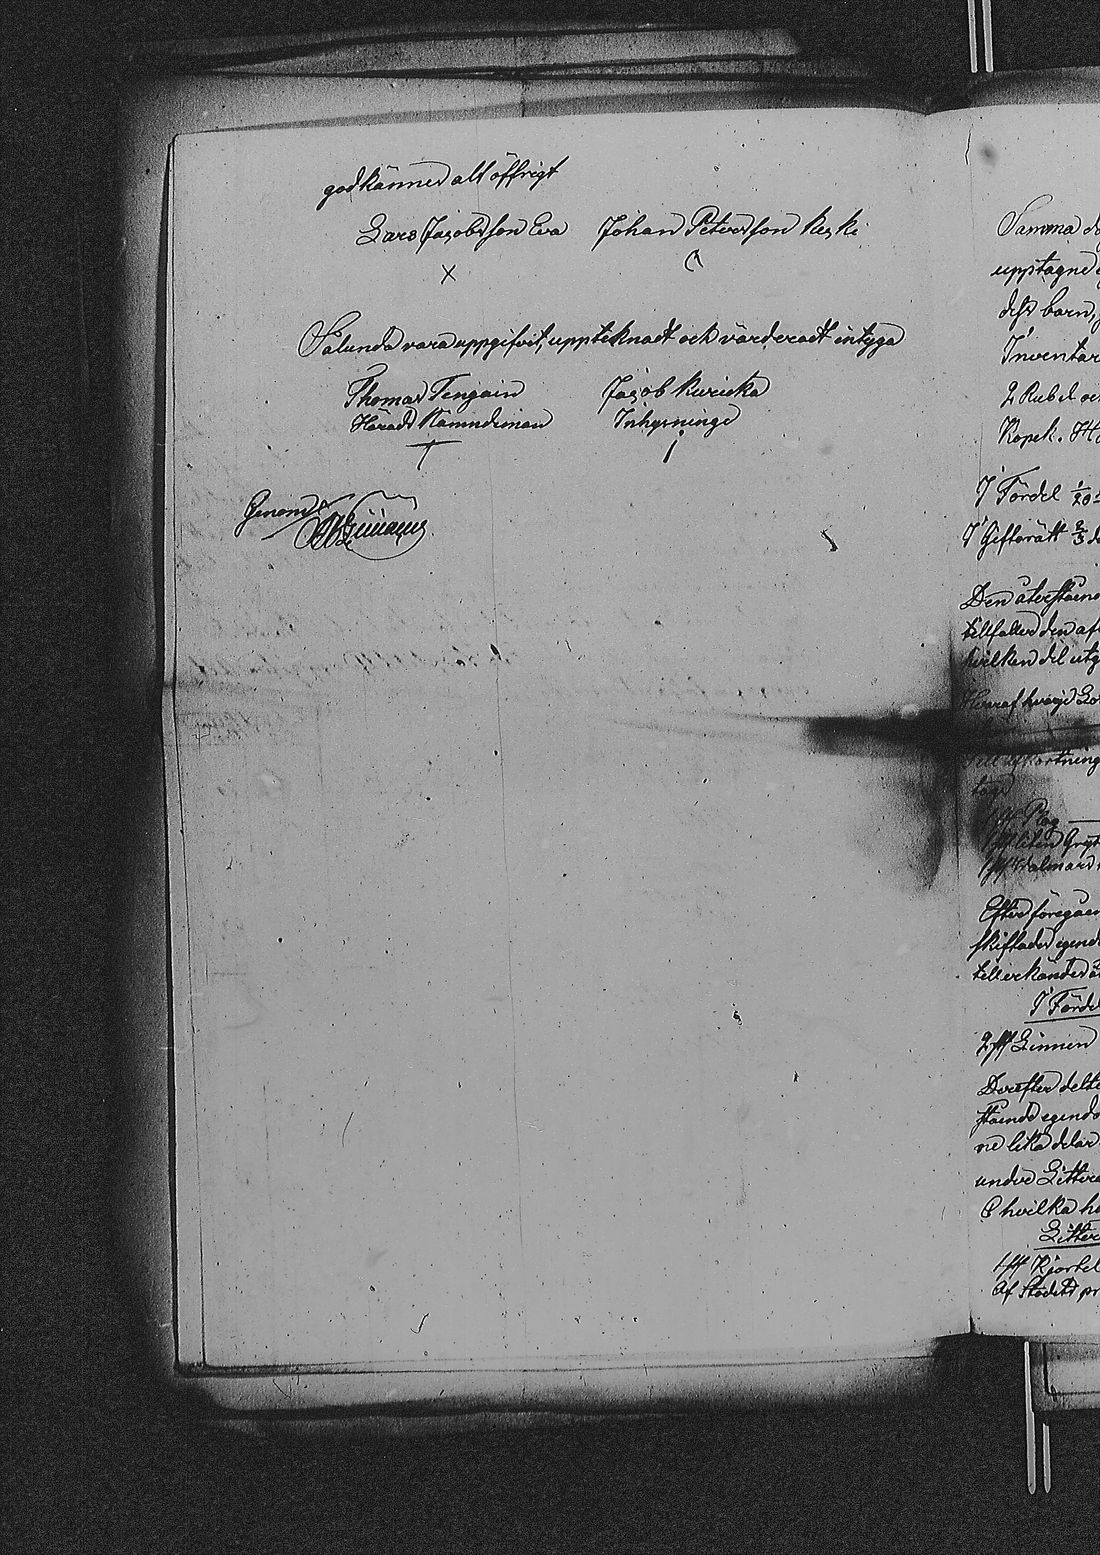 godkännes alt öffrigt
Lars Jacobsson Eva Johan Petersson Keski
X
Sålunda vara uppgifvit, uppteknadt och värderadt intyga
Thomas Tengain Jacob Kuricka
Härads Nämndeman Inhysninge
Genom
Samma
upptagne
dess barn,
Inventar
2 Rubel oc
Kopek.
I Fördel 1/20
I Giftorätt 2/3 d
Den återstående
tillfaller den af
hvilken del utg
Häraf hvarje Lo
Till afkortning
tages
Plog
1 st liten Gryt
1 st Walmars
Efter föregåen
skiftades egend
tillerkändes
I Förde
2 st Linnen
Derefter delte
stående egendo
ne lika delar
under Littera
C hvilka ha
Litter
1 st Kjortel
Af Stadets pr